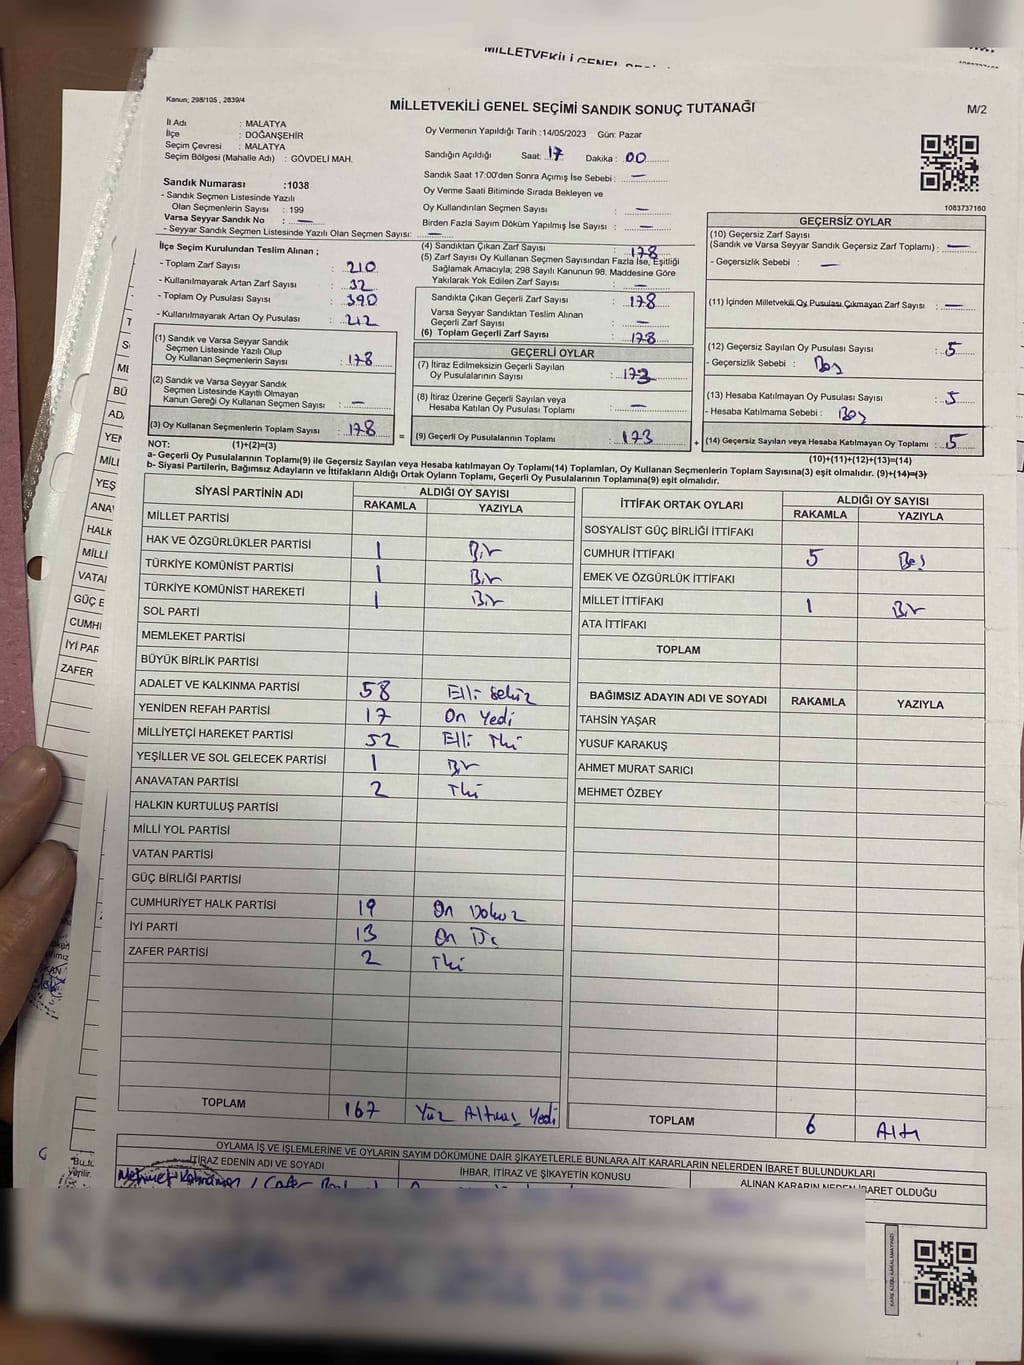 MİLLETVEKİLİ GENEL
Kanun; 298/105 , 2839/4
MİLLETVEKİLİ GENEL SEÇİMİ SANDIK SONUÇ TUTANAĞI
M/2
İl Adı : MALATYA
İlçe : DOĞANŞEHİR
Seçim Çevresi : MALATYA
Seçim Bölgesi (Mahalle Adı) : GÖVDELİ MAH.
Sandık Numarası :1038
- Sandık Seçmen Listesinde Yazılı
Olan Seçmenlerin Sayısı : 199
Varsa Seyyar Sandık No : —
- Seyyar Sandık Seçmen Listesinde Yazılı Olan Seçmen Sayısı: —
Oy Vermenin Yapıldığı Tarih :14/05/2023 Gün: Pazar
Sandığın Açıldığı Saat: 17 Dakika : 00
Sandık Saat 17:00'den Sonra Açılmış İse Sebebi : —
Oy Verme Saati Bitiminde Sırada Bekleyen ve
Oy Kullandırılan Seçmen Sayısı : —
Birden Fazla Sayım Döküm Yapılmış İse Sayısı : —
1083737160
İlçe Seçim Kurulundan Teslim Alınan ;
- Toplam Zarf Sayısı : 210
- Kullanılmayarak Artan Zarf Sayısı : 32
- Toplam Oy Pusulası Sayısı : 390
- Kullanılmayarak Artan Oy Pusulası : 212
(1) Sandık ve Varsa Seyyar Sandık
Seçmen Listesinde Yazılı Olup
Oy Kullanan Seçmenlerin Sayısı : 178
(2) Sandık ve Varsa Seyyar Sandık
Seçmen Listesinde Kayıtlı Olmayan
Kanun Gereği Oy Kullanan Seçmen Sayısı : —
(3) Oy Kullanan Seçmenlerin Toplam Sayısı : 178
(4) Sandıktan Çıkan Zarf Sayısı : 178
(5) Zarf Sayısı Oy Kullanan Seçmen Sayısından Fazla İse, Eşitliği
Sağlamak Amacıyla; 298 Sayılı Kanunun 98. Maddesine Göre
Yakılarak Yok Edilen Zarf Sayısı : —
Sandıkta Çıkan Geçerli Zarf Sayısı : 178
Varsa Seyyar Sandıktan Teslim Alınan
Geçerli Zarf Sayısı : —
(6) Toplam Geçerli Zarf Sayısı : 178
GEÇERLİ OYLAR
(7) İtiraz Edilmeksizin Geçerli Sayılan
Oy Pusulalarının Sayısı : 173
(8) İtiraz Üzerine Geçerli Sayılan veya
Hesaba Katılan Oy Pusulası Toplamı : —
= (9) Geçerli Oy Pusulalarının Toplamı : 173 +
GEÇERSİZ OYLAR
(10) Geçersiz Zarf Sayısı
(Sandık ve Varsa Seyyar Sandık Geçersiz Zarf Toplamı) : —
- Geçersizlik Sebebi : —
(11) İçinden Milletvekili Oy Pusulası Çıkmayan Zarf Sayısı : —
(12) Geçersiz Sayılan Oy Pusulası Sayısı : 5
- Geçersizlik Sebebi : Boş
(13) Hesaba Katılmayan Oy Pusulası Sayısı : 5
- Hesaba Katılmama Sebebi : Boş
(14) Geçersiz Sayılan veya Hesaba Katılmayan Oy Toplamı : 5
NOT: (1)+(2)=(3) (10)+(11)+(12)+(13)=(14)
a- Geçerli Oy Pusulalarının Toplamı(9) ile Geçersiz Sayılan veya Hesaba katılmayan Oy Toplamı(14) Toplamları, Oy Kullanan Seçmenlerin Toplam Sayısına(3) eşit olmalıdır. (9)+(14)=(3)
b- Siyasi Partilerin, Bağımsız Adayların ve İttifakların Aldığı Ortak Oyların Toplamı, Geçerli Oy Pusulalarının Toplamına(9) eşit olmalıdır.
SİYASİ PARTİNİN ADI ALDIĞI OY SAYISI
RAKAMLA YAZIYLA
MİLLET PARTİSİ
HAK VE ÖZGÜRLÜKLER PARTİSİ 1 Bir
TÜRKİYE KOMÜNİST PARTİSİ 1 Bir
TÜRKİYE KOMÜNİST HAREKETİ 1 Bir
SOL PARTİ
MEMLEKET PARTİSİ
BÜYÜK BİRLİK PARTİSİ
ADALET VE KALKINMA PARTİSİ 58 Elli Sekiz
YENİDEN REFAH PARTİSİ 17 On Yedi
MİLLİYETÇİ HAREKET PARTİSİ 52 Elli İki
YEŞİLLER VE SOL GELECEK PARTİSİ 1 Bir
ANAVATAN PARTİSİ 2 İki
HALKIN KURTULUŞ PARTİSİ
MİLLİ YOL PARTİSİ
VATAN PARTİSİ
GÜÇ BİRLİĞİ PARTİSİ
CUMHURİYET HALK PARTİSİ 19 On Dokuz
İYİ PARTİ 13 On Üç
ZAFER PARTİSİ 2 İki
TOPLAM 167 Yüz Altmış Yedi
İTTİFAK ORTAK OYLARI ALDIĞI OY SAYISI
RAKAMLA YAZIYLA
SOSYALİST GÜÇ BİRLİĞİ İTTİFAKI
CUMHUR İTTİFAKI 5 Beş
EMEK VE ÖZGÜRLÜK İTTİFAKI
MİLLET İTTİFAKI 1 Bir
ATA İTTİFAKI
TOPLAM
BAĞIMSIZ ADAYIN ADI VE SOYADI RAKAMLA YAZIYLA
TAHSİN YAŞAR
YUSUF KARAKUŞ
AHMET MURAT SARICI
MEHMET ÖZBEY
TOPLAM 6 Altı
OYLAMA İŞ VE İŞLEMLERİNE VE OYLARIN SAYIM DÖKÜMÜNE DAİR ŞİKAYETLERLE BUNLARA AİT KARARLARIN NELERDEN İBARET BULUNDUKLARI
İTİRAZ EDENİN ADI VE SOYADI İHBAR, İTİRAZ VE ŞİKAYETİN KONUSU ALINAN KARARIN NEDEN İBARET OLDUĞU
Mehmet
GÜÇ B
CUMHU
İYİ PAR
ZAFER